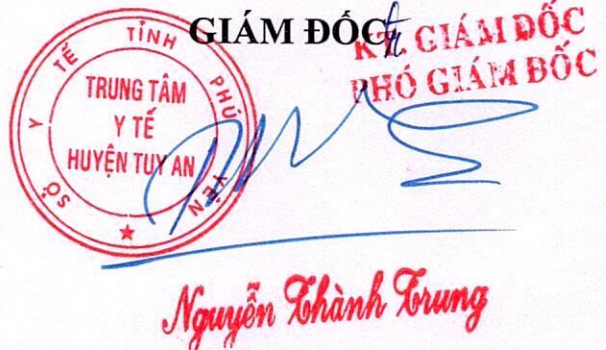 GIÁM ĐỐC
KT. GIÁM ĐỐC
PHÓ GIÁM ĐỐC
SỞ Y TẾ TỈNH PHÚ YÊN
TRUNG TÂM
Y TẾ
HUYỆN TUY AN
Nguyễn Thành Trung